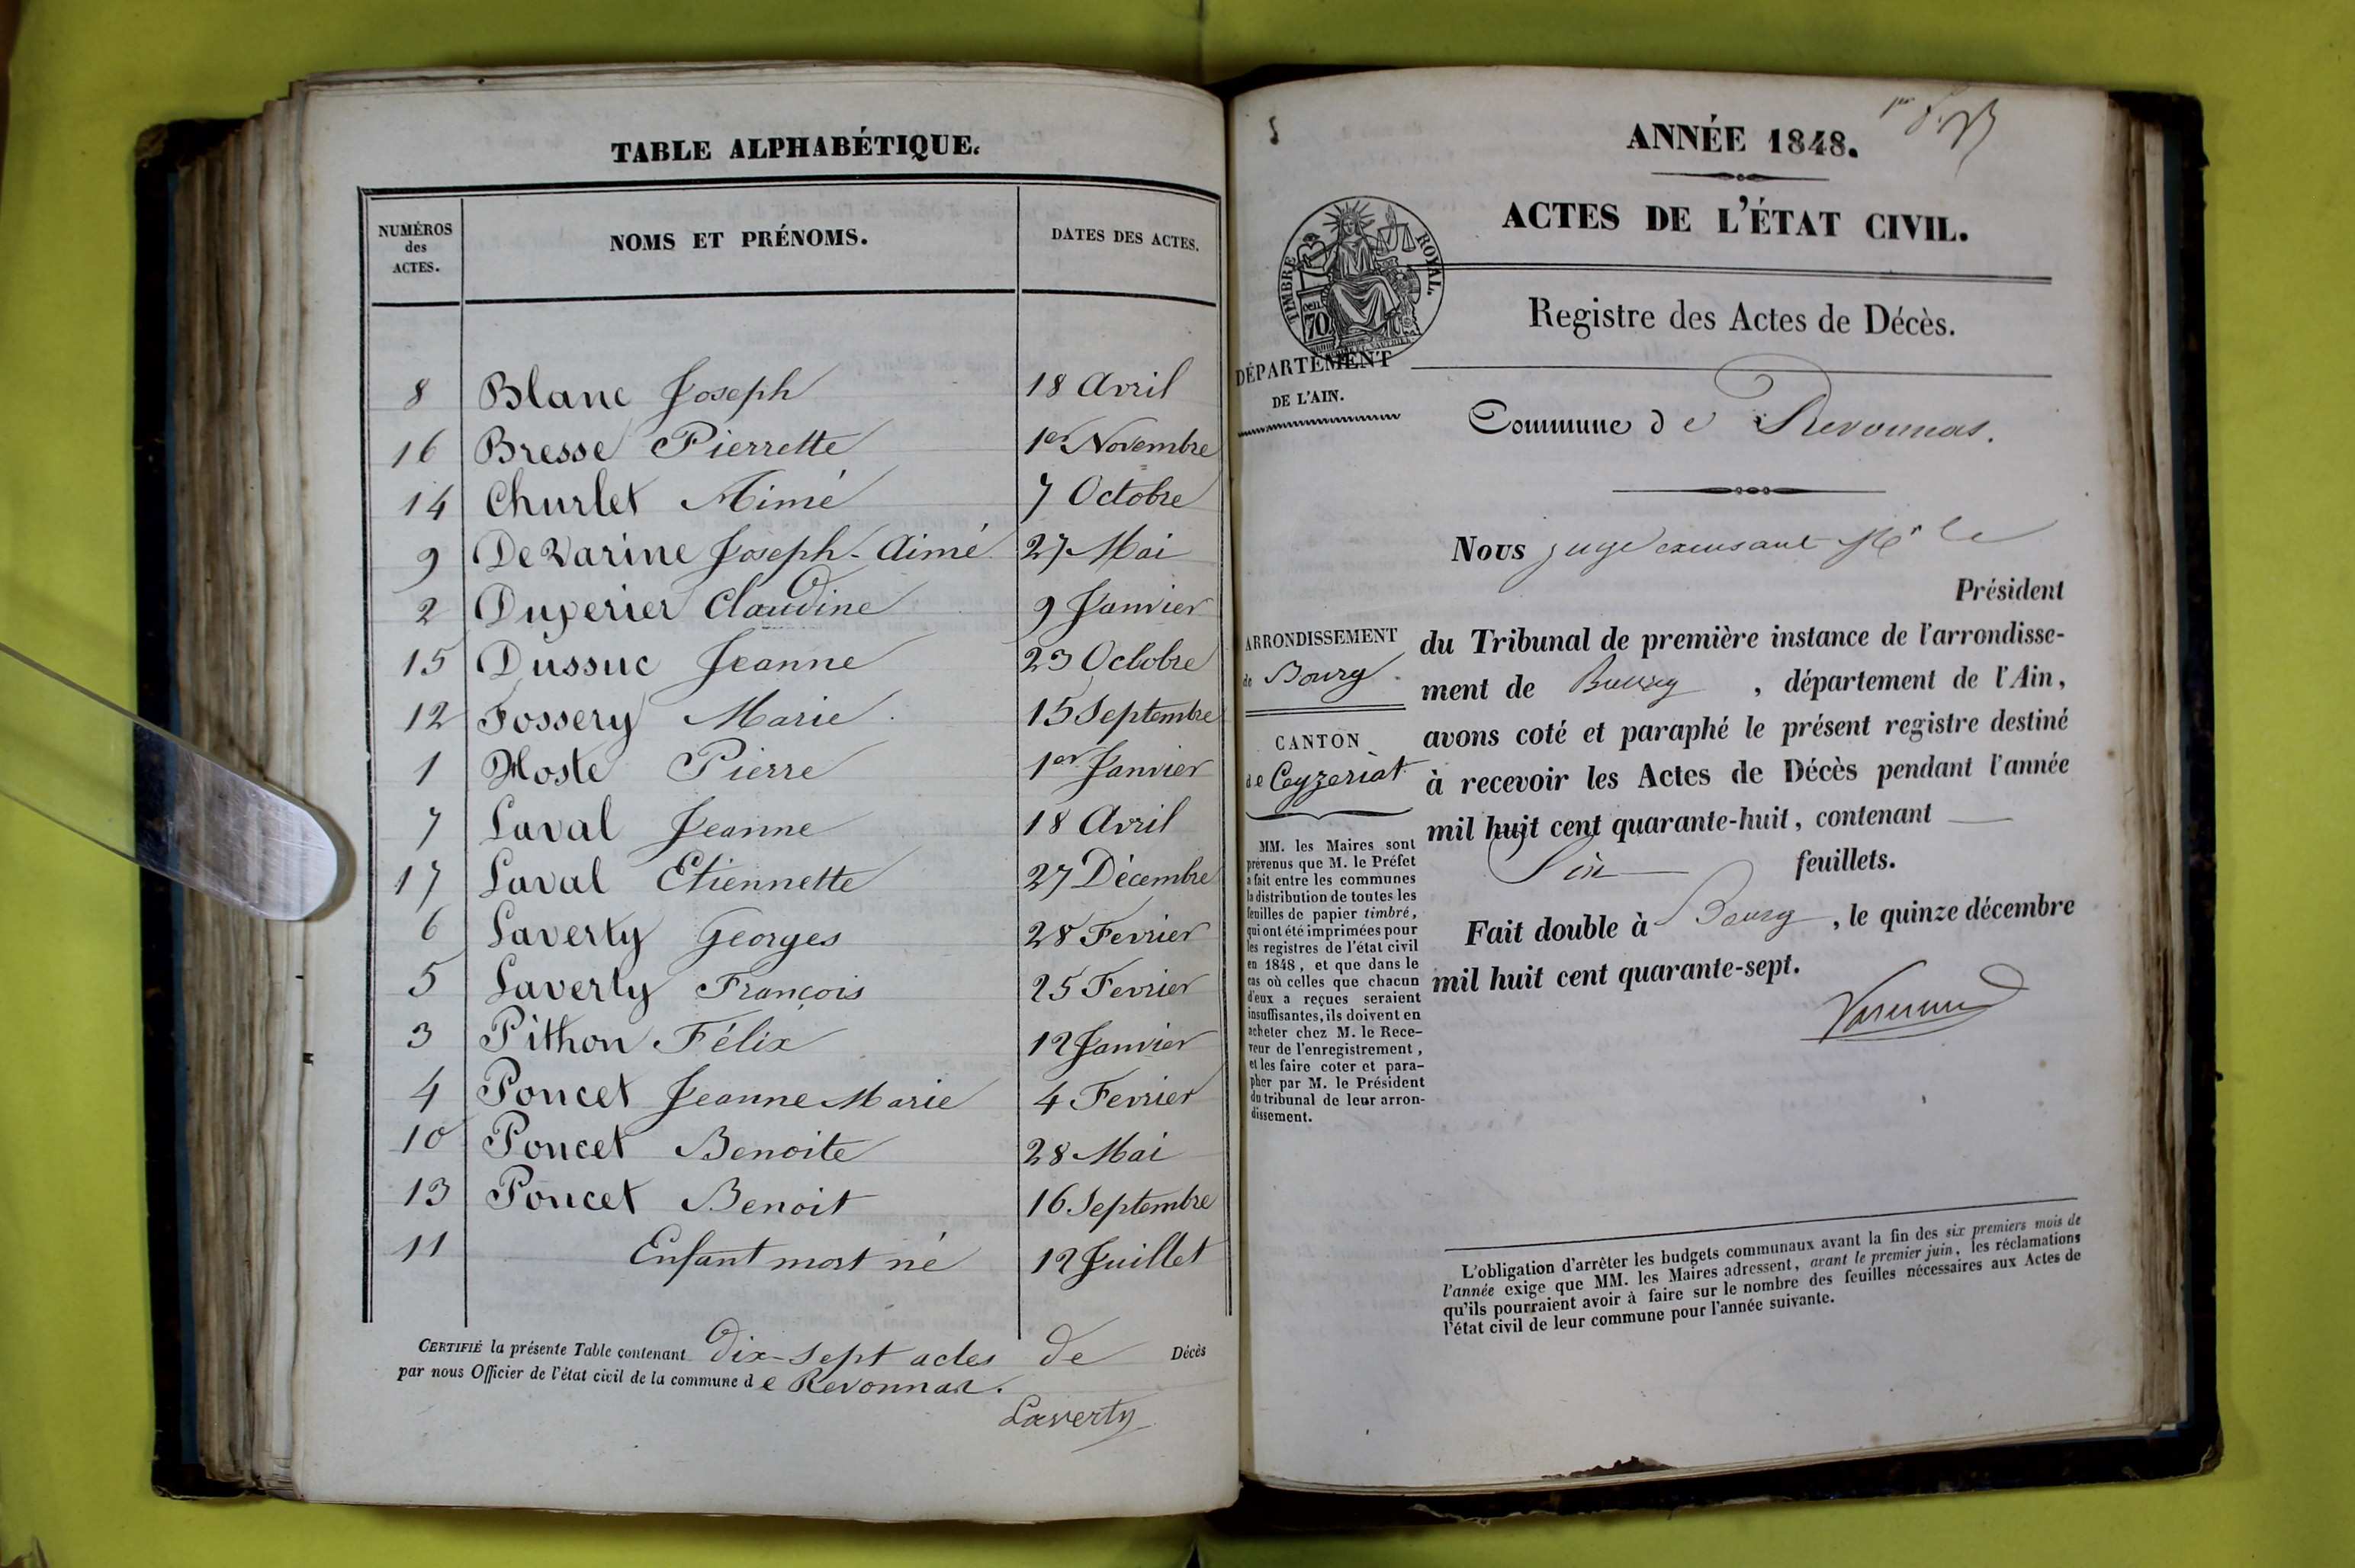 TABLE ALPHABÉTIQUE.
NUMÉROS des ACTES.
NOMS ET PRÉNOMS.
DATES DES ACTES.
8 Blanc Joseph 18 Avril
16 Bresse Pierrette 1er Novembre
14 Churlet Aimé 7 Octobre
9 DeVarine Joseph-Aimé 27 Mai
2 Duperier Claudine 9 Janvier
15 Dussuc Jeanne 23 Octobre
12 Fossery Marie 15 Septembre
1 Hoste Pierre 1er Janvier
7 Laval Jeanne 18 Avril
17 Laval Etiennette 27 Décembre
6 Laverty Georges 28 Fevrier
5 Laverty François 25 Fevrier
3 Pithon Félix 12 Janvier
4 Poncet Jeanne Marie 4 Fevrier
10 Poncet Benoite 28 Mai
13 Poncet Benoit 16 Septembre
11 Enfant mort né 12 Juillet
CERTIFIÉ la présente Table contenant dix-sept actes de Décès
par nous Officier de l'état civil de la commune de Revonnas.
Laverty
ANNÉE 1848.
ACTES DE L'ÉTAT CIVIL.
TIMBRE ROYAL
70 cen
Registre des Actes de Décès.
DÉPARTEMENT
DE L'AIN.
Commune de Revonnas.
Nous juge
Mr le
Président
ARRONDISSEMENT
de Bourg
CANTON
de Ceyzeriat
du Tribunal de première instance de l'arrondisse-
ment de Bourg, département de l'Ain,
avons coté et paraphé le présent registre destiné
à recevoir les Actes de Décès pendant l'année
mil huit cent quarante-huit, contenant
Six feuillets.
Fait double à Bourg, le quinze décembre
mil huit cent quarante-sept.
MM. les Maires sont
prévenus que M. le Préfet
a fait entre les communes
la distribution de toutes les
feuilles de papier timbré,
qui ont été imprimées pour
les registres de l'état civil
en 1848, et que dans le
cas où celles que chacun
d'eux a reçues seraient
insuffisantes, ils doivent en
acheter chez M. le Rece-
veur de l'enregistrement,
et les faire coter et para-
pher par M. le Président
du tribunal de leur arron-
dissement.
L'obligation d'arrêter les budgets communaux avant la fin des six premiers mois de
l'année exige que MM. les Maires adressent, avant le premier juin, les réclamations
qu'ils pourraient avoir à faire sur le nombre des feuilles nécessaires aux Actes de
l'état civil de leur commune pour l'année suivante.